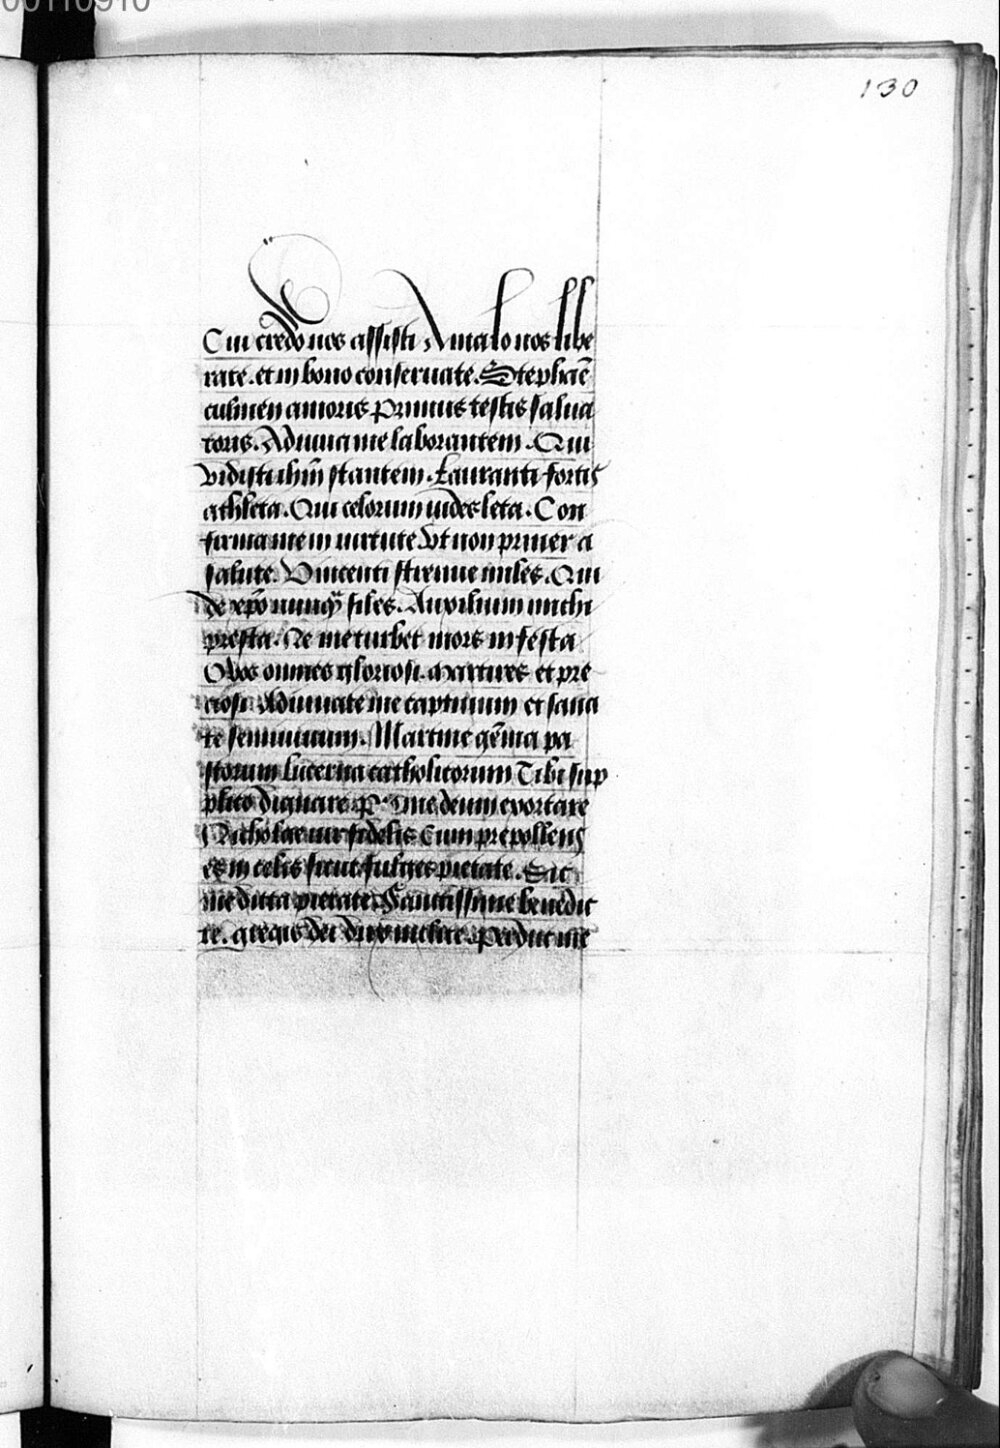 00110910
130
Cui credo nos assisti A malo nos libe
rate. et in bono conseruate. Stephāē
culmen amoris Primus testis salua
toris. Adiuua me laborantem. Qui
vidisti ihm̄ stantem. Lauranti fortis
athleta. Qui celorum uides leta. Con
firma me in uirtute Vt non priuer a
salute. Vincenti strenue miles. Qui
de xpō nunq̄ siles. Auxilium michi
presta. Ne me turbet mors infesta
O vos omnes gloriosi martires et pre
ciosi Adiuuate me captiuum et sana
te semiuiuum. Martine gēma pa
storum lucerna catholicorum Tibi sup
plico dignare me deum exortare
Nicholae uir fidelis Cum prepollens
es in celis sicut fulges pietate. Sic
me dita pietate. Sanctissime benedic
te. gregis dei dux inclite. Perduc me